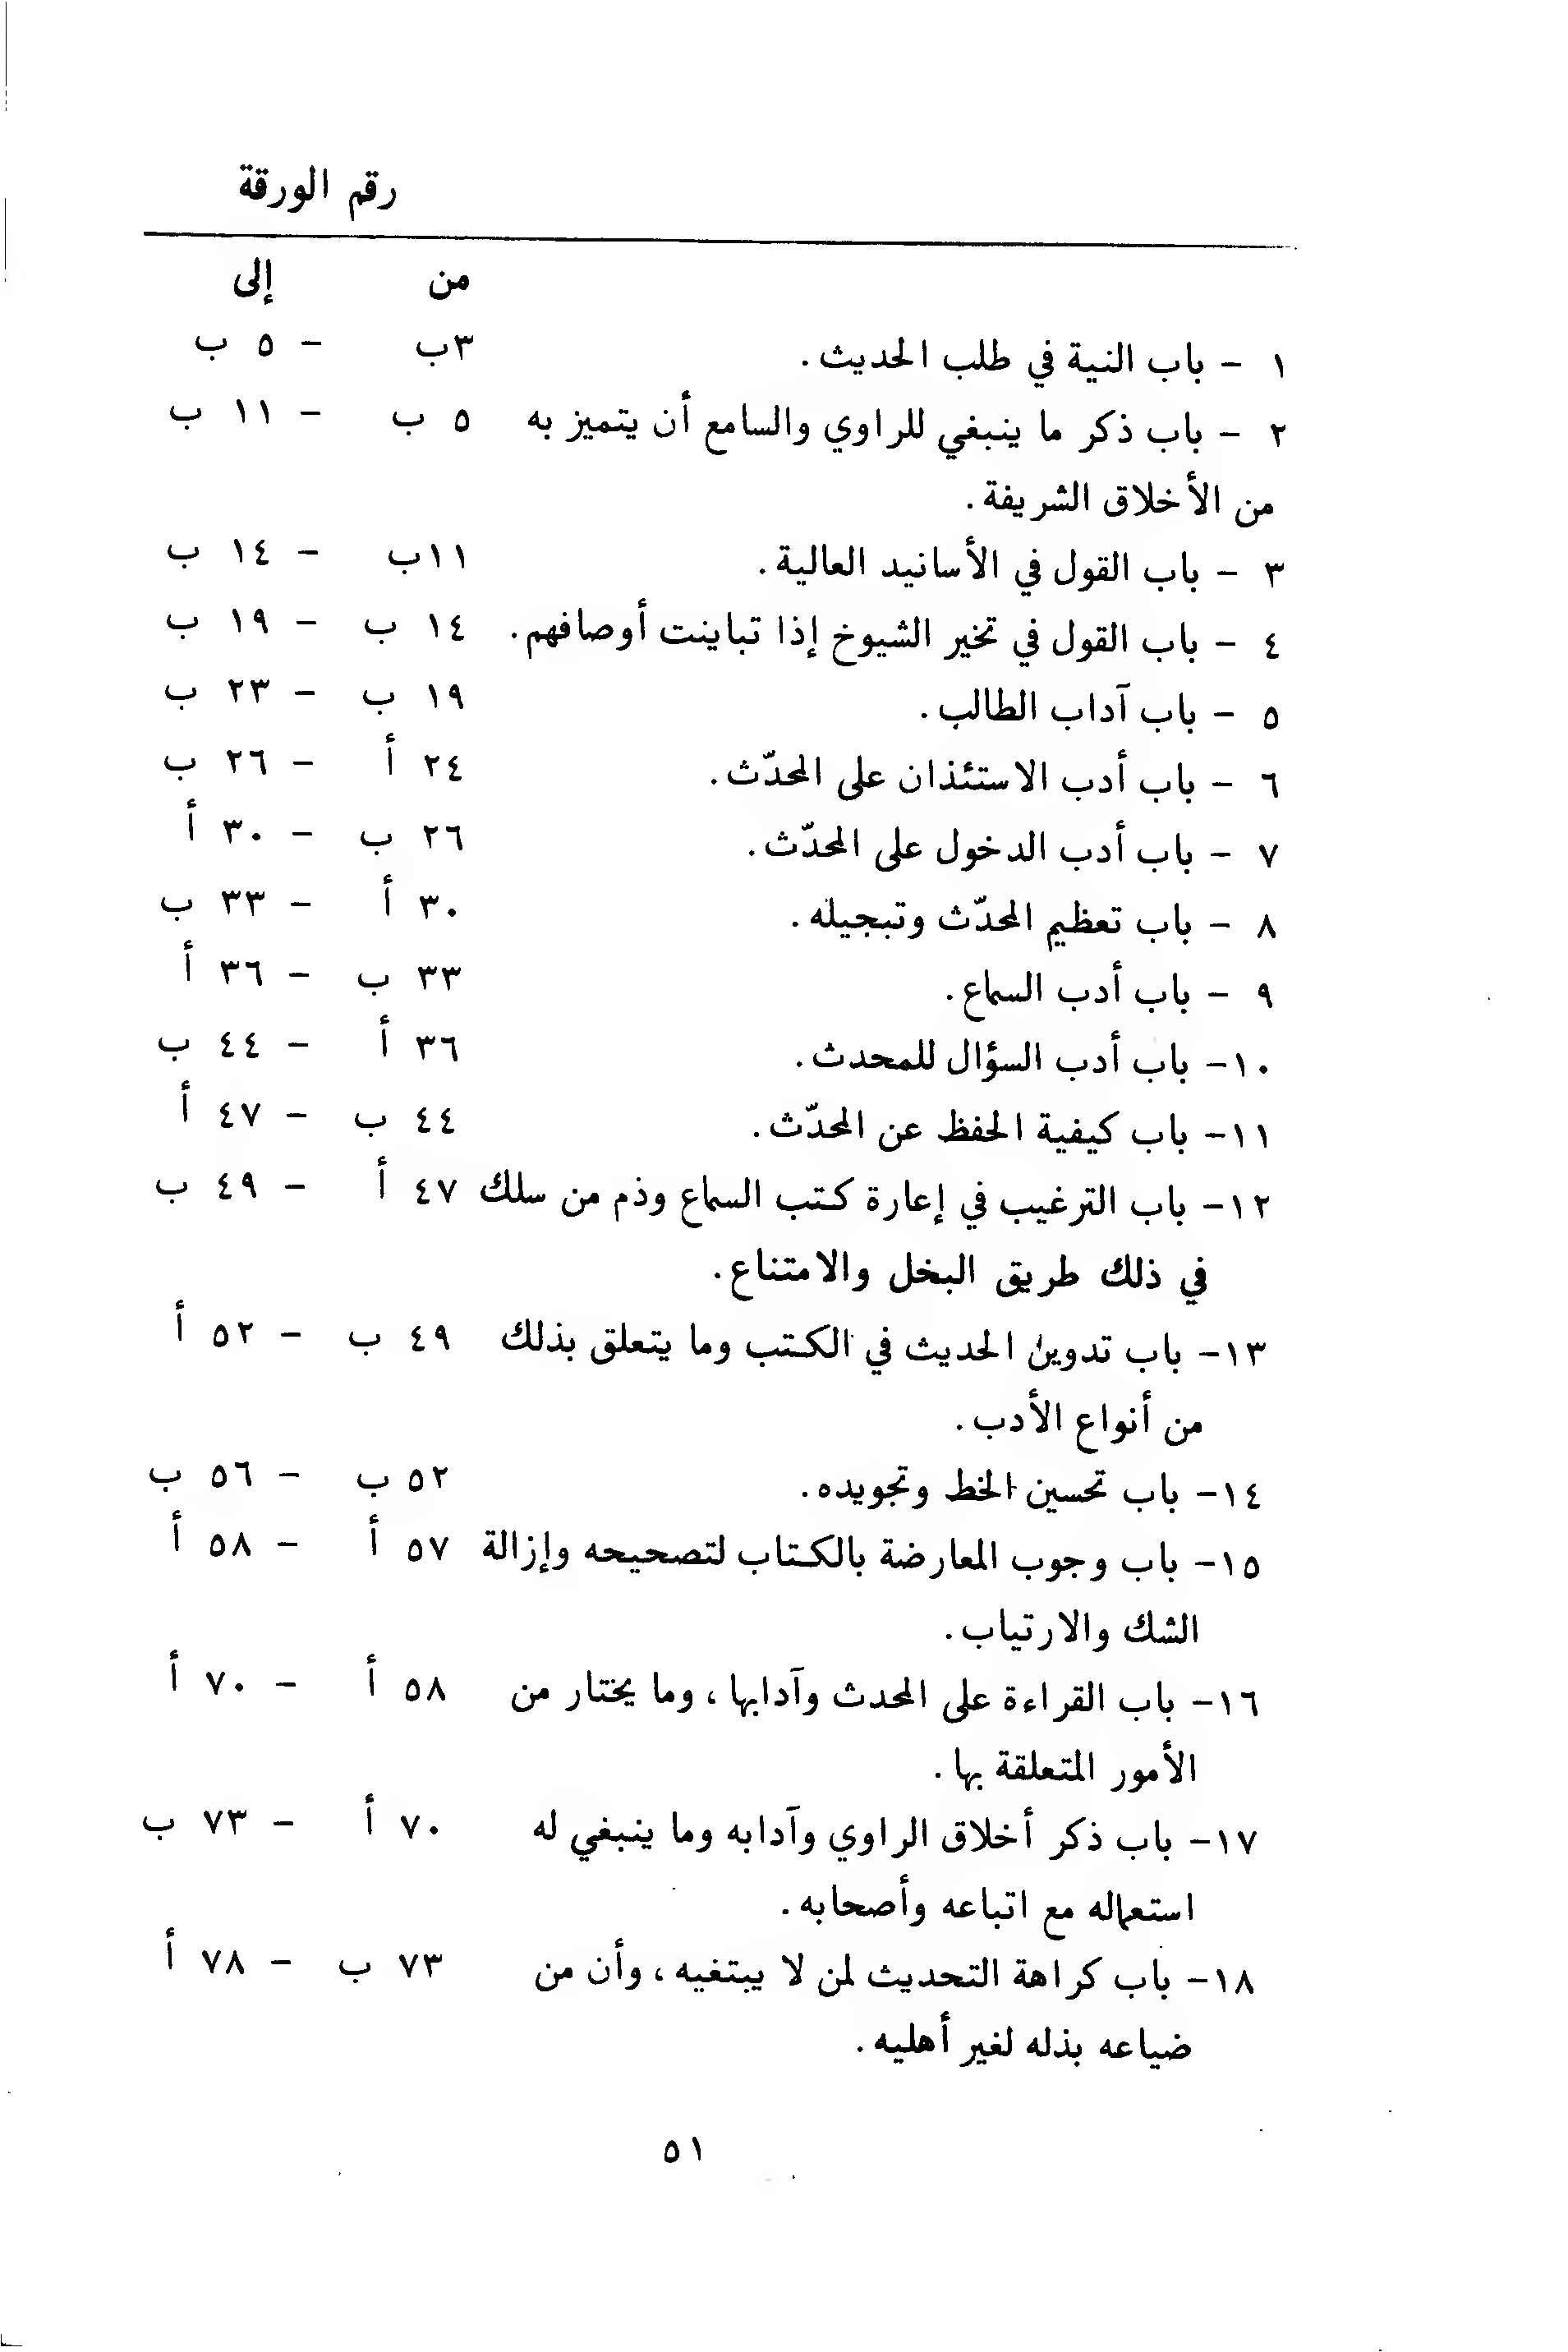 رقم الورقة
من إلى
١ - باب النية في طلب الحديث. ٣ب - ٥ ب
٢ - باب ذكر ما ينبغي للراوي والسامع أن يتميز به ٥ ب - ١١ ب
من الأخلاق الشريفة.
٣ - باب القول في الأسانيد العالية. ١١ب - ١٤ ب
٤ - باب القول في تخير الشيوخ إذا تباينت أوصافهم. ١٤ ب - ١٩ ب
٥ - باب آداب الطالب. ١٩ ب - ٢٣ ب
٦ - باب أدب الاستئذان على المحدّث. ٢٤ أ - ٢٦ ب
٧ - باب أدب الدخول على المحدّث. ٢٦ ب - ٣٠ أ
٨ - باب تعظيم المحدّث وتبجيله. ٣٠ أ - ٣٣ ب
٩ - باب أدب السماع. ٣٣ ب - ٣٦ أ
١٠- باب أدب السؤال للمحدث. ٣٦ أ - ٤٤ ب
١١- باب كيفية الحفظ عن المحدّث. ٤٤ ب - ٤٧ أ
١٢- باب الترغيب في إعارة كتب السماع وذم من سلك ٤٧ أ - ٤٩ ب
في ذلك طريق البخل والامتناع.
١٣- باب تدوين الحديث في الكتب وما يتعلق بذلك ٤٩ ب - ٥٢ أ
من أنواع الأدب.
١٤- باب تحسين الخط وتجويده. ٥٢ ب - ٥٦ ب
١٥- باب وجوب المعارضة بالكتاب لتصحيحه وإزالة ٥٧ أ - ٥٨ أ
الشك والارتياب.
١٦- باب القراءة على المحدث وآدابها، وما يختار من ٥٨ أ - ٧٠ أ
الأمور المتعلقة بها.
١٧- باب ذكر أخلاق الراوي وآدابه وما ينبغي له ٧٠ أ - ٧٣ ب
استعماله مع اتباعه وأصحابه.
١٨- باب كراهة التحديث لمن لا يبتغيه، وأن من ٧٣ ب - ٧٨ أ
ضياعه بذله لغير أهليه.
٥١